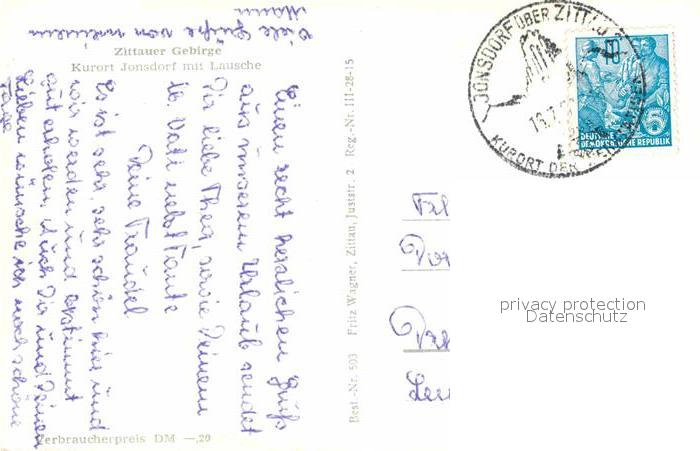 Zittauer Gebirge
Kurort Jonsdorf mit Lausche
Einen recht herzlichen Gruß
aus unserem Urlaub sendet
Dir liebe Thea, sowie Deinem
lb. Vati nebst Tante
Deine Traudel
Es ist sehr, sehr schön hier und
wir werden uns bestimmt
gut erholen. Auch Dir und Deinen
Lieben wünsche ich noch schöne
Tage.
Viele Grüße von meinem
Mann
Verbraucherpreis DM —,20
Best.-Nr. 503 Fritz Wagner, Zittau, Juststr. 2 Reg.-Nr. III-28-15
JONSDORF ÜBER ZITTAU
KURORT DER
DEUTSCHE
DEMOKRATISCHE REPUBLIK
5
privacy protection
Datenschutz